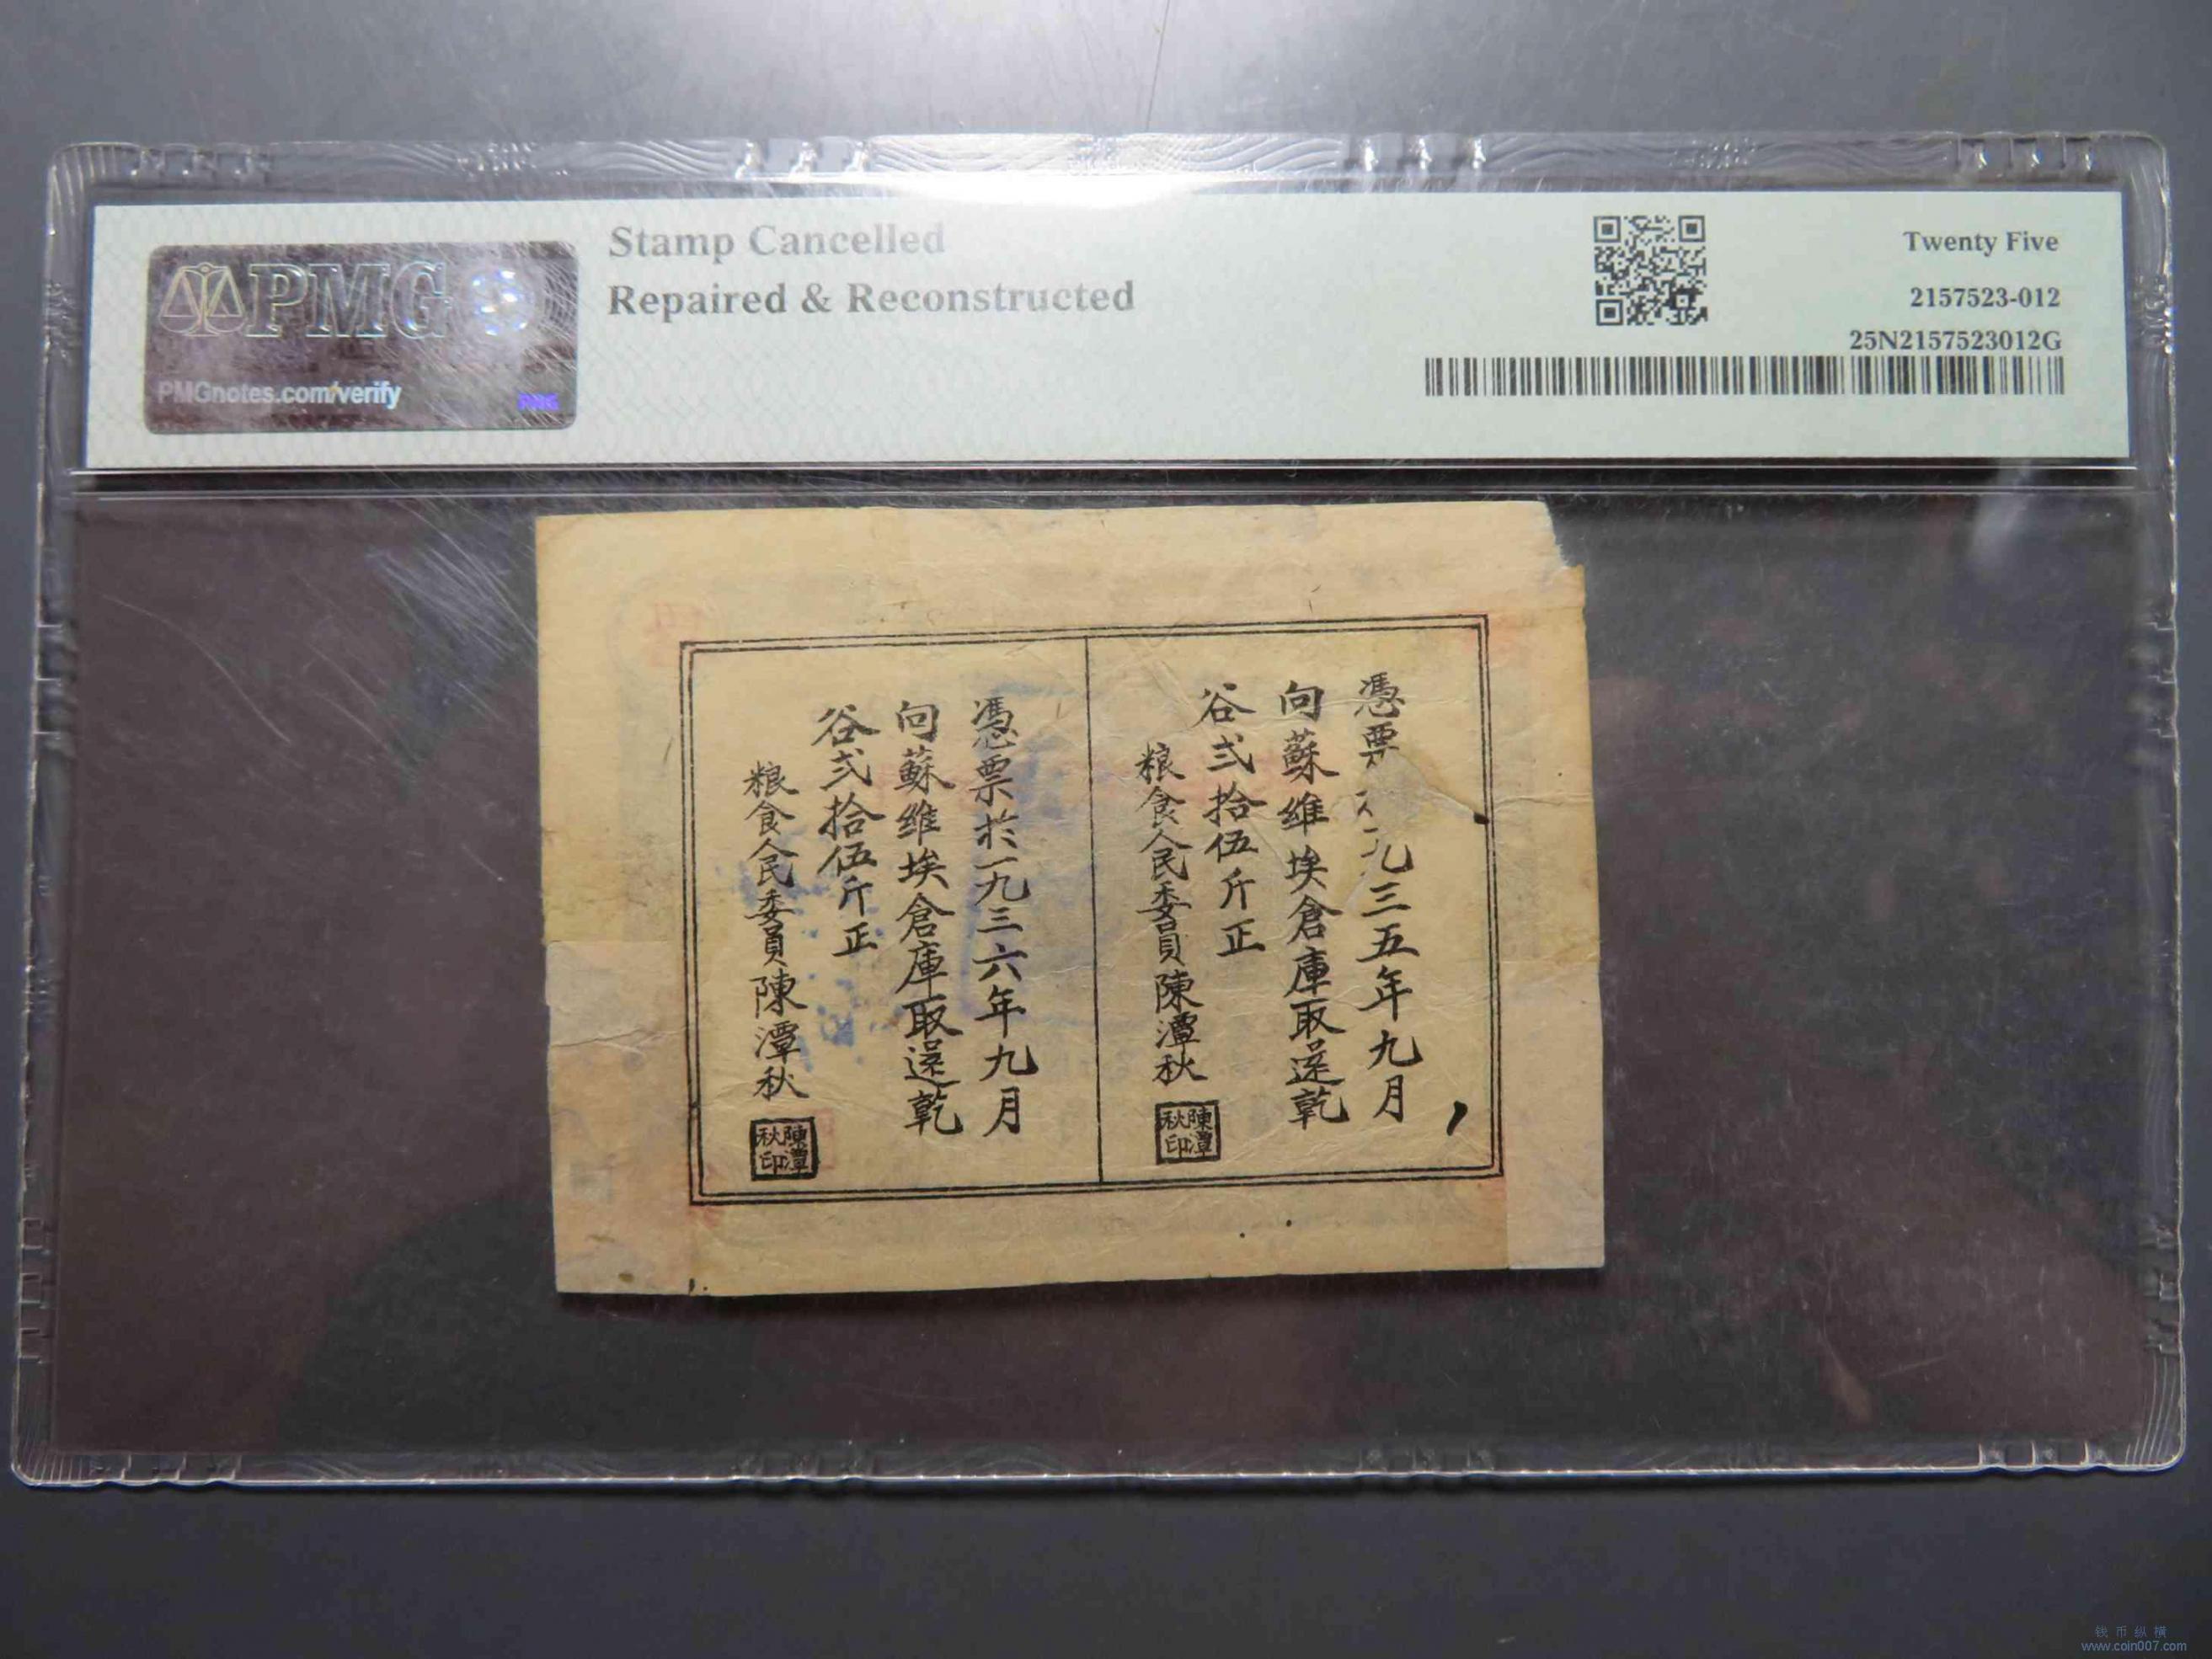 PMG
PMGnotes.com/verify
PMG
Stamp Cancelled
Repaired & Reconstructed
Twenty Five
2157523-012
25N2157523012G
憑票 九三五年九月
向蘇維埃倉庫取還乾
谷弍拾伍斤正
粮食人民委員陳潭秋
陳潭秋印
憑票於一九三六年九月
向蘇維埃倉庫取還乾
谷弍拾伍斤正
粮食人民委員陳潭秋
陳潭秋印
钱币纵横
www.coin007.com